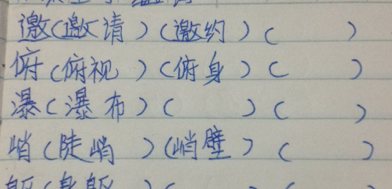 邀(邀请)(邀约)(      )
俯(俯视)(俯身)(      )
瀑(瀑布)(      )(      )
峭(陡峭)(峭壁)(      )